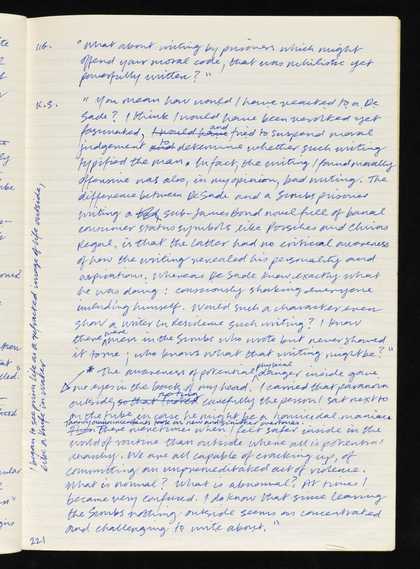 W.G. "What about writing by prisoners which might
offend your moral code, that was nihilistic yet
powerfully written?"
K.S. "You mean how would I have reacted to a De
Sade? I think I would have been revolted yet
fascinated, I would have and tried to suspend moral
judgement and to determine whether such writing
typified the man. In fact, the writing I found morally
offensive was also, in my opinion, bad writing. The
difference between De Sade and a Scrubs prisoner
writing a sub-James Bond novel full of banal
consumer status symbols like Porsches and Chivas
Regal, is that the latter had no critical awareness
of how the writing revealed his personality and
aspirations. Whereas De Sade knew exactly what
he was doing: consciously shocking everyone
including himself. Would such a character even
show a writer in residence such writing? I know
there were men in the Scrubs who wrote but never showed
it to me; who knows what that writing might be?"
* The awareness of potential physical danger inside gave
me eyes in the back of my head. I carried that paranoia
outside, so that I noted noting carefully the person I sat next to
on the tube in case he might be a homicidal maniac.
Tannoy announcements took on new and sinister overtones.
There were times when I felt safer inside in the
world of routine than outside where all is potential
anarchy. We are all capable of cracking up, of
committing an unpremeditated act of violence.
What is normal? What is abnormal? At times I
became very confused. I do know that since leaving
the Scrubs nothing outside seems as concentrated
and challenging to write about."
221
I began to see prison life as a refracted image of life outside,
like a knife in water